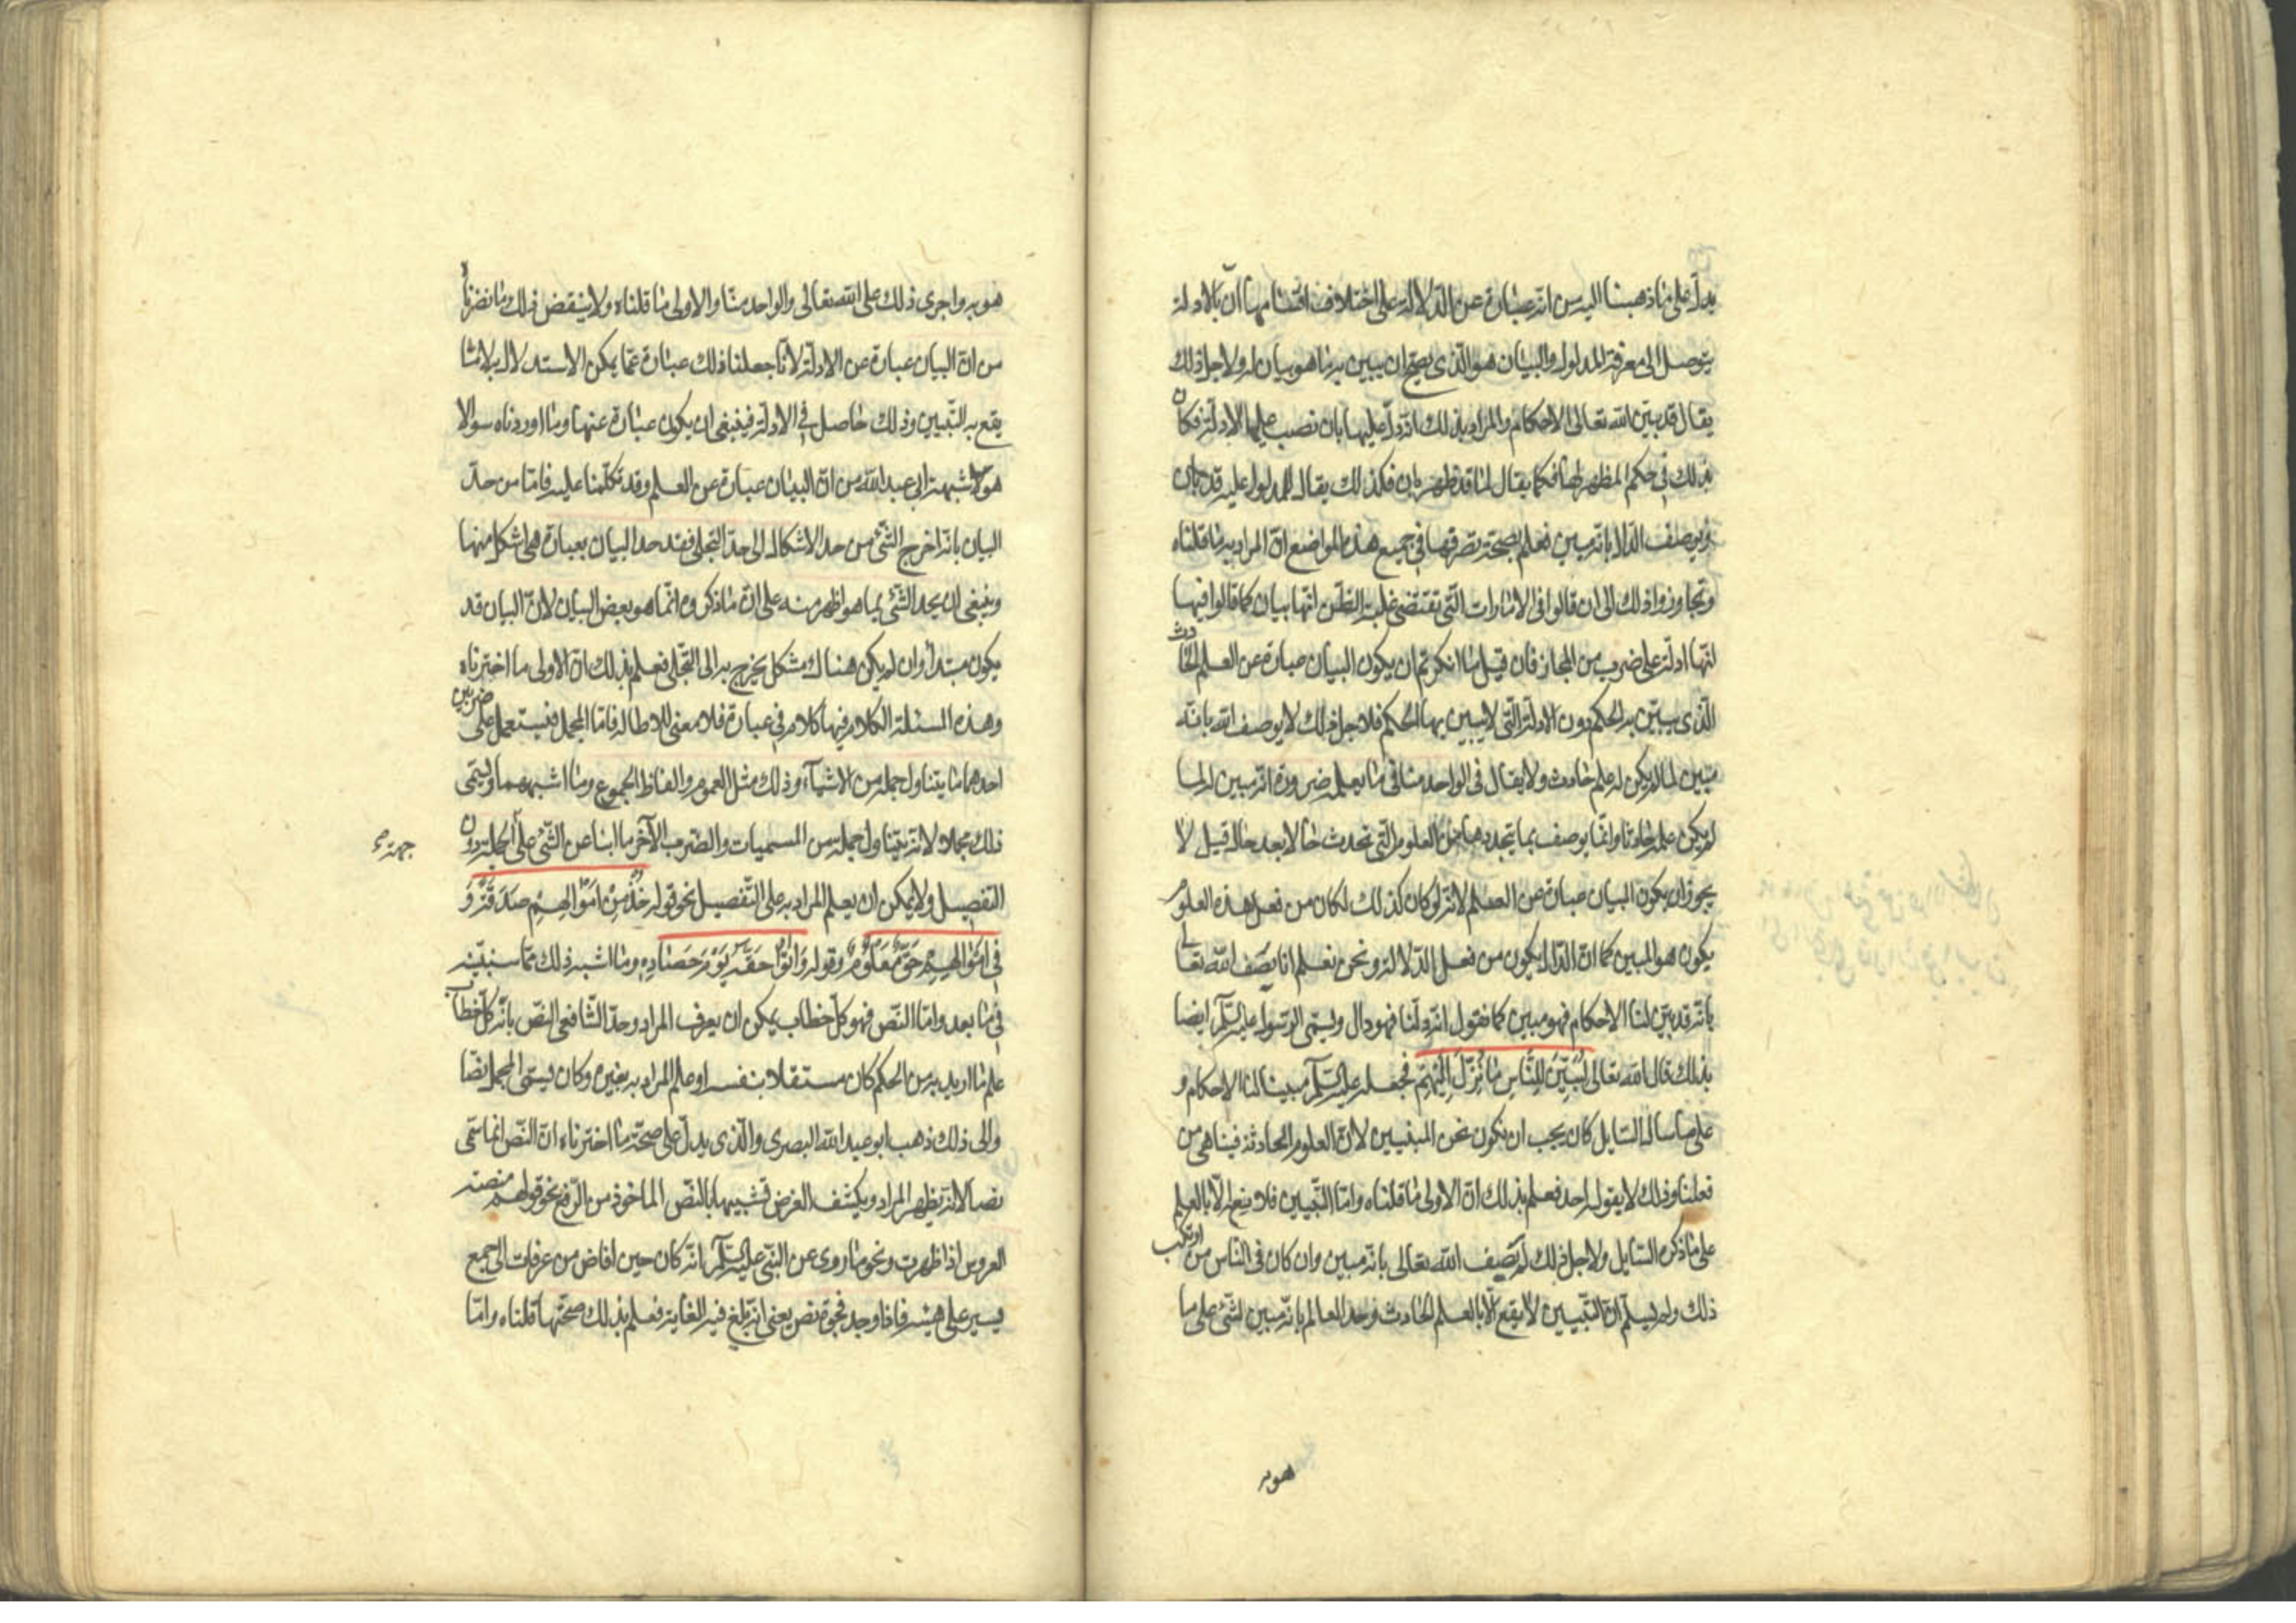 يدلّ على ما ذهبنا اليه من انه عبارة عن الدّلالة على اختلاف اقسامها انّ بالادلة
يتوصل الى معرفة المدلول والبيان هو الّذى يصحّ ان يبين به ما هو بيان له ولاجل ذلك
يقال قد بيّن الله تعالى الاحكام والمراد بذلك انه دلّ عليها بان نصب عليها الادلّة فكان
بذلك فى حكم المظهر لها فكما يقال لما قد ظهر بان فكذلك يقال للمدلول عليه قد بان
ويوصف الدّال بانه مبين فعلم بصحّة تصرّفها فى جميع هذه المواضع انّ المراد به ما قلناه
وتجاوزوا ذلك الى ان قالوا فى الامارات التّى تقتضى غلبة الظّن انّها بيان كما قالوا فيها
انّها ادلّة على ضرب من المجاز فان قيل ما انكرتم ان يكون البيان عبارة عن العلم الحادث
الّذى يبيّن به الحكم دون الادلّة الّتى لا يبين بها الحكم فلاجل ذلك لا يوصف الله بانّه
متبين لما لم يكن له علم حادث ولا يقال فى الواحد منا فى ما يعلم ضرورة انه متبين له لما
لم يكن علمه حادثا وانّما يوصف بما يتجدد من العلوم الّتى تحدث حالا بعد حال قيل لا
يجوز ان يكون البيان عبارة عن العلم لانه لو كان كذلك لكان من فعل هذه العلوم
يكون هو المبين كما انّ الدّال يكون من فعل الدّلالة ونحن نعلم انا نصف الله تعالى
بانه قد بيّن لنا الاحكام فهو مبين كما نقول انه دلّنا فهو دال ويسمّى الرّسول عليه السّلم ايضا
بذلك قال الله تعالى لتُبيّنَ للنّاسِ ما نُزّلَ اِلَيْهِمْ فجعله عليه السّلم مبينا لنا الاحكام و
على ما ساله السّايل كان يجب ان نكون نحن المبينين لانّ العلوم الحادثة فينا هى من
فعلنا وذلك لا يقوله احد فعلم بذلك انّ الاولى ما قلناه وامّا التّبيين فلا يقع الّا بالعلم
على ما ذكره السّايل ولاجل ذلك لم نصف الله تعالى بانّه متبين وان كان فى النّاس من ارتكب
ذلك ولم يسلّم انّ التّبيين لا يقع الّا بالعلم الحادث وحدّ العالم بانّه متبين لشّىء على ما
هو به
هو به واجرى ذلك على الله تعالى والواحد منّا والاولى ما قلناه ولا ينقض ذلك ما نصرناه
من انّ البيان عبارة عن الادلّة لانّا جعلنا ذلك عبارة عمّا يمكن الاستدلال به لا ما
يقع به التّبيين وذلك حاصل فى الادلّة فينبغى ان يكون عبارة عنها وما اوردناه سوالا
هو شبهة ابى عبد الله من انّ البيان عبارة عن العلم وقد تكلّمنا عليه فامّا من حدّ
البيان بانه اخرج الشّىء من حد الاشكال الى حدّ التّجلى فقد حد البيان بعبارة هى اشكل منها
وينبغى ان يحد الشّىء بما هو اظهر منه على انّ ما ذكروه انّما هو بعض البيان لانّ البيان قد
يكون مبتدأ وان لم يكن هناك مشكل يخرج به الى التّجلى فعلم بذلك انّ الاولى ما اخترناه
وهذه المسئلة الكلام فيها كلام فى عبارة فلا معنى للاطالة فامّا المجمل فيستعمل على ضربين
احدهما ما يتناول جملة من الاشياء وذلك مثل العموم والفاظ الجموع وما اشبههما ويسمّى
ذلك مجملا لانه يتناول جملة من المسميات والضرب الآخر ما انبأ عن الشّىء على الجملة دون
جهة
التفصيل ولا يمكن ان يعلم المراد به على التّفصيل نحو قوله خُذْ مِنْ اَمْوالِهِمْ صَدَقَةً وَ
فِى اَمْوالِهِمْ حَقٌّ مَعْلُومٌ وقوله وَاتُوا حَقّهُ يَوْمَ حَصادِهِ وما اشبه ذلك ممّا سنبيّنه
فى ما بعد وامّا النّص فهو كلّ خطاب يمكن ان يعرف المراد وحدّ الشّافعى النّص بانّه كلّ خطاب
علم ما اريد به من الحكم كان مستقلا بنفسه او علم المراد به بغيره وكان يسمّى المجمل نصّا
والى ذلك ذهب ابو عبد الله البصرى والّذى يدلّ على صحّة ما اخترناه انّ النّص انّما سمّى
نصا لانّه يظهر المراد ويكشف الغرض تشبيها بالنّص الماخوذ من الرّفع نحو قولهم منصة
العروس اذا ظهرت ونحو ما روى عن النبّى عليه السّلم انّه كان حين افاض من عرفات الى جمع
يسير على هينه فاذا وجد فجوة نص يعنى انّه بلغ فيه الغاية فعلم بذلك صحّة ما قلناه وامّا